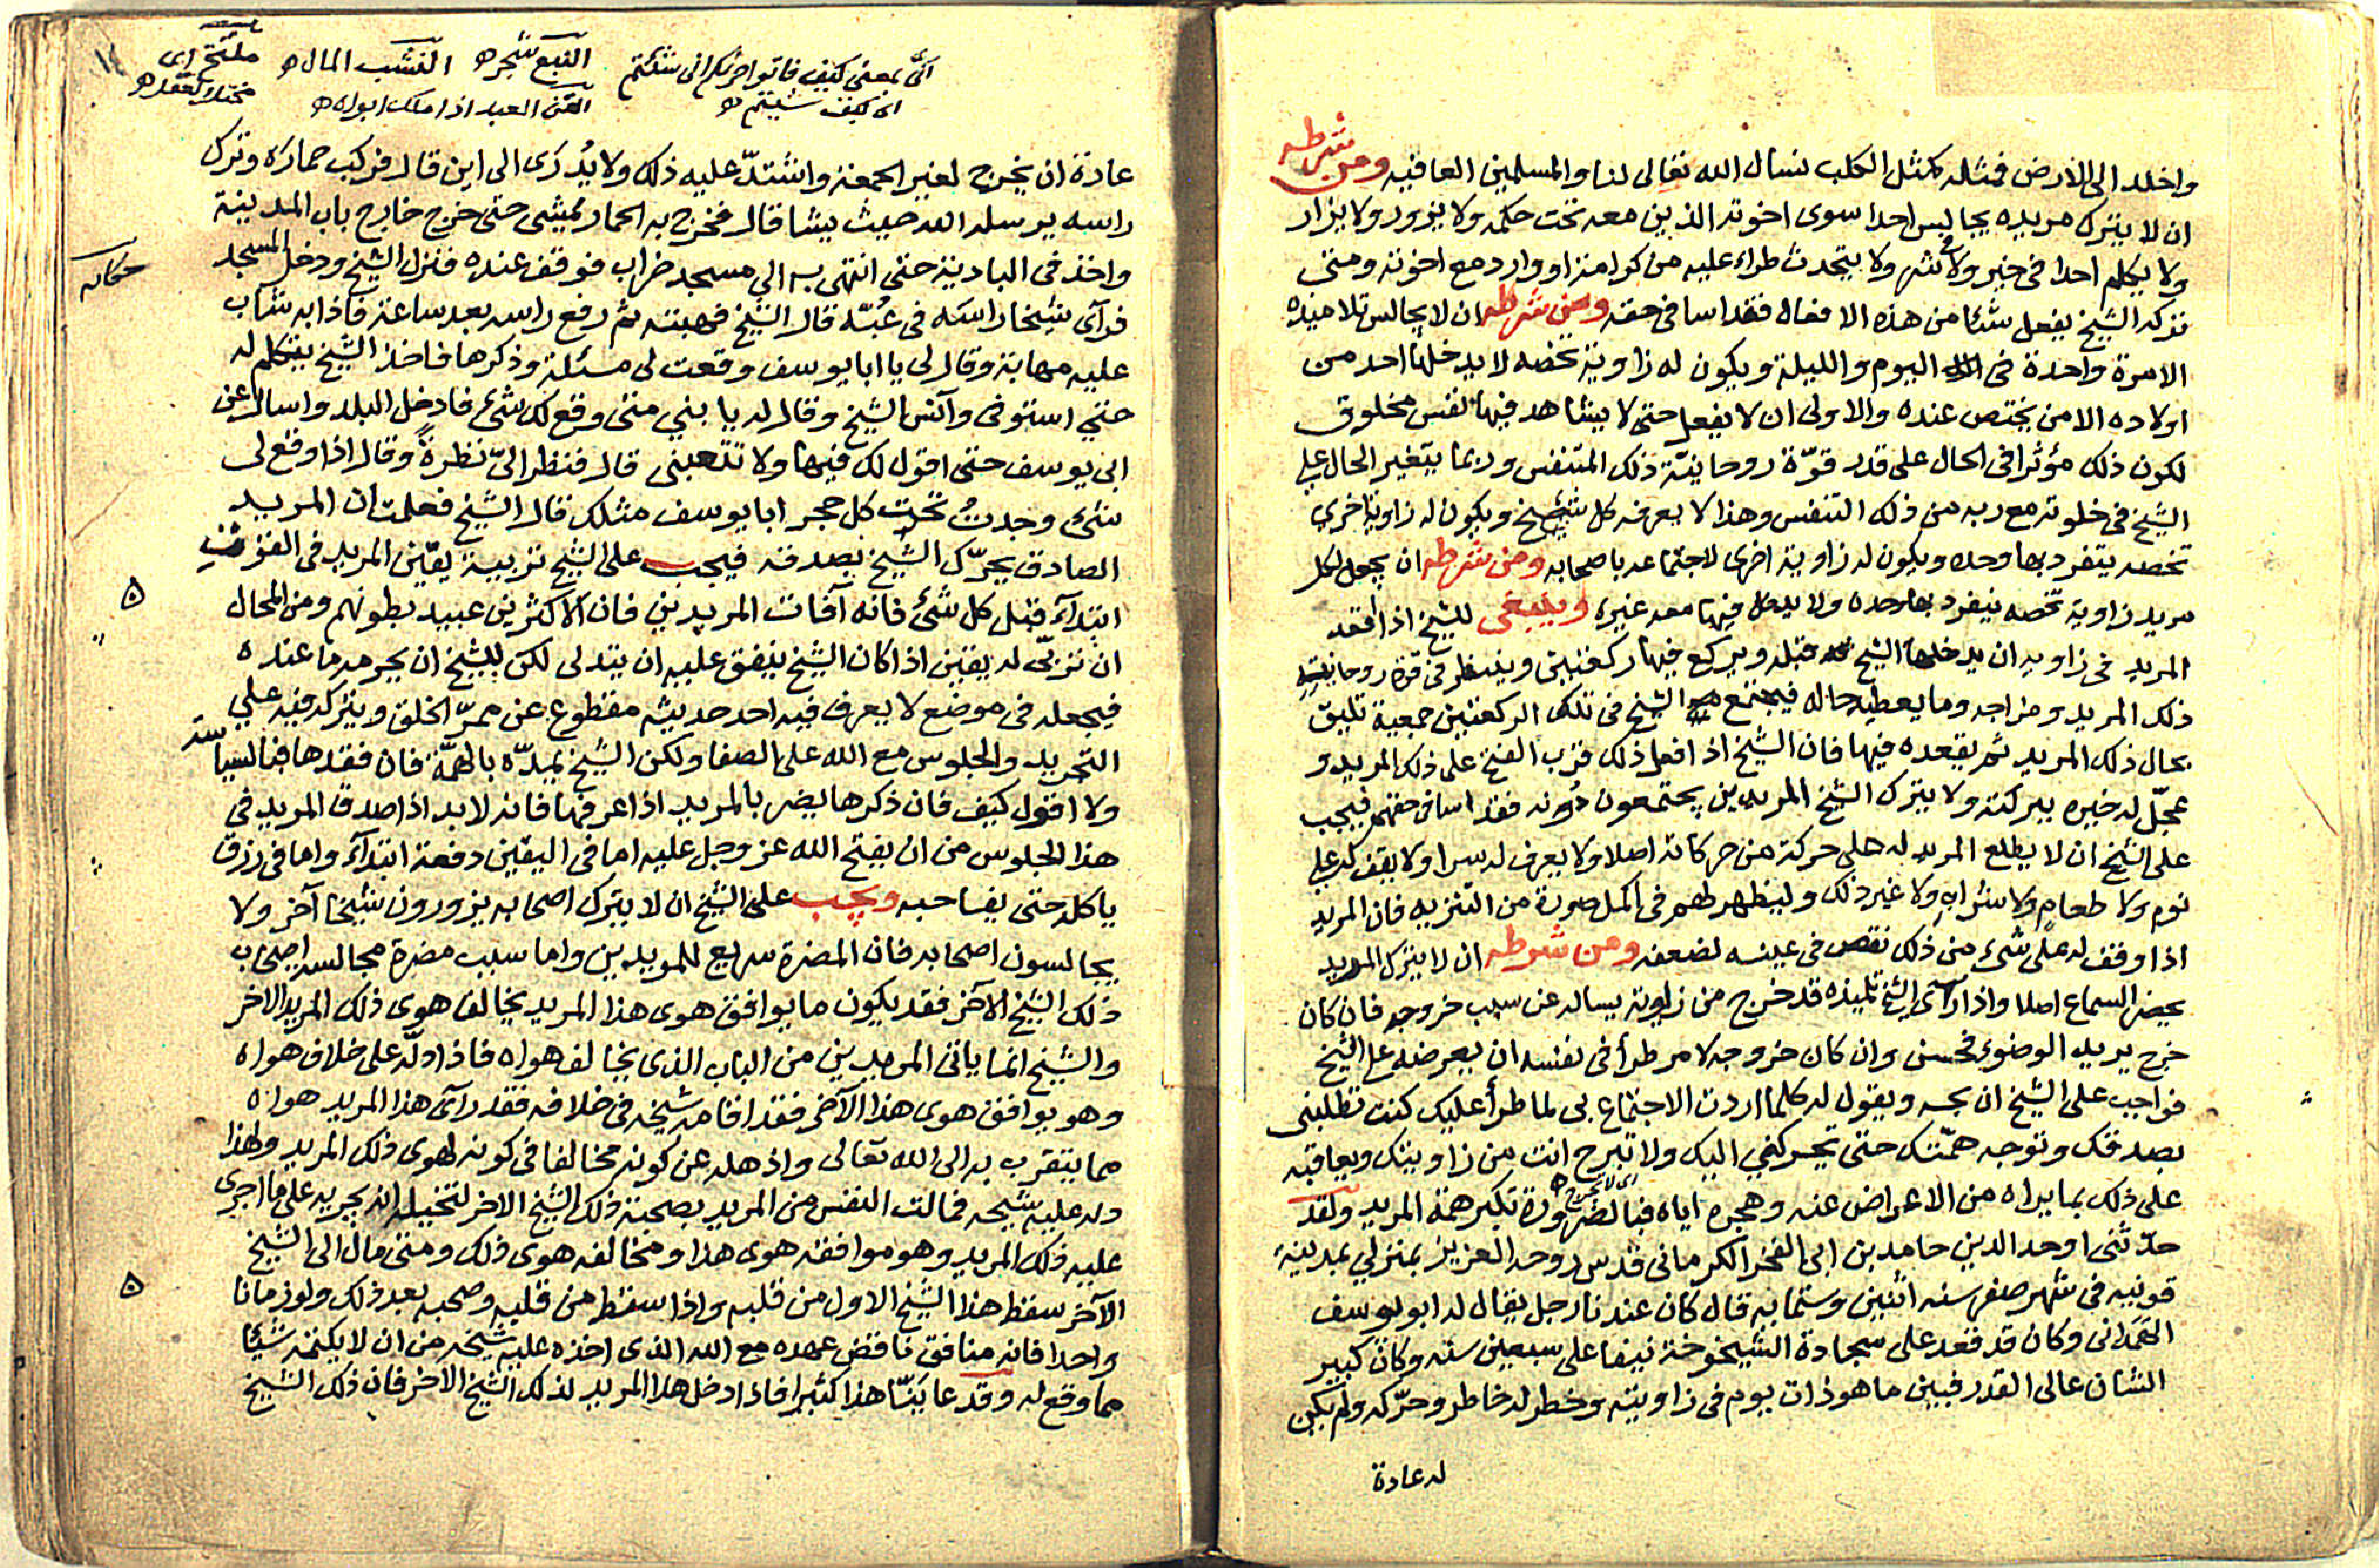 واخلد الى الارض فمثله كمثل الكلب نسال الله تعالى لنا والمسلمين العافيه ومن شرطه
ان لا يترك مريده يجالس احدا سوى اخوته الذين معه تحت حكمه ولا يزور ولا يزار
ولا يكلم احدا فى خير ولا شر ولا يتحدث طراء عليه من كرامة او وارد مع اخوته ومتى
تركه الشيخ يفعل شئا من هذه الافعال فقد اسا فى حقه ومن شرطه ان لا يجالس تلاميذه
الا مرة واحدة فى اليوم والليلة ويكون له زاوية تخصه لا يدخلها احد من
اولاده الا من يختص عنده والاولى ان لا يفعل حتى لا يشاهد فيها نفس مخلوق
لكون ذلك مؤثرا فى الحال على قدر قوّة روحانيّة ذلك المتنفس وربما يتغير الحال على
الشيخ فى خلوته مع ربه من ذلك التنفس وهذا لا يعرفه كل شيخ ويكون له زاوية اخرى
تخصه يتفرد بها وحده ويكون له زاوية اخرى لاجتماعه باصحابه ومن شرطه ان يجعل لكل
مريد زاوية تخصه ينفرد بها وحده ولا يدخل فيها معه غيره وينبغى للشيخ اذا اقعد
المريد فى زاويه ان يدخلها الشيخ قبله ويركع فيها ركعتين وينظر فى قوة روحانية
ذلك المريد ومزاجه وما يعطيه حاله فيجتمع الشيخ فى تلك الركعتين جمعية تليق
بحال ذلك المريد ثم يقعده فيها فان الشيخ اذا فعل ذلك قرب الفتح على ذلك المريد و
عجّل له خيره ببركته ولا يترك الشيخ المريدين يجتمعون دونه فقد اسا فى حقهم فيجب
على الشيخ ان لا يطلع المريد له على حركة من حركاته اصلا ولا يعرف له سرا ولا يقف له على
نوم ولا طعام ولا شراب ولا غير ذلك وليظهر لهم فى اكمل صورة من التنزيه فان المريد
اذا وقف له على شىء من ذلك نقص فى عينه لضعفه ومن شرطه ان لا يترك المريد
يحضر السماع اصلا واذا رآى الشيخ تلميذه قد خرج من زاويته يساله عن سبب خروجه فان كان
خرج يريد الوضوء فحسن وان كان خروجه لامر طرأ فى نفسه ان يعرضه على الشيخ
فواجب على الشيخ ان ويقول له كلما اردت الاجتماع بى لما طرأ عليك كنت تطلبنى
بصدقك وتوجه همّتك حتى تحركنى اليك ولا تبرح انت من زاويتك ويعاقبه
اى لا تخرج
على ذلك بما يراه من الاعراض عنه وهجره اياه فبالضرورة تكبر همة المريد ولقد
حدّثنى اوحد الدين حامد بن ابى الفخر الكرمانى قدس روحه العزيز بمنزلى بمدينة
قونيه فى شهر صفر سنه اثنين وستمايه قال كان عندنا رجل يقال له ابو يوسف
الهمدانى وكان قد قعد على سجادة الشيخوخة نيفا على سبعين سنه وكان كبير
الشان عالى القدر فبين ما هو ذات يوم فى زاويته وخطر له خاطر وحرّكه ولم يكن
له عادة
انّى بمعنى كيف فاتوا حرثكم انى شئتم
اى كيف شئتم
النبع شجر
النشب المال
القن العبد اذا ملك ابواه
ملتخ اى
مختلا لعقله
١٤
عادة ان يخرج لغير الجمعة واشتدّ عليه ذلك ولا يُدرَى الى اين قال فركب حماره وترك
راسه يرسله الله حيث يشا قال فخرج به الحمار يمشى حتى خرج خارج باب المدينة
واخذ فى البادية حتى انتهى به الى مسجد خراب فوقف عنده فنزل الشيخ ودخل المسجد
حكايه
فرآى شيخا راسَه فى عُبّه قال الشيخ فهبته ثم رفع راسه بعد ساعة فاذا به شاب
عليه مهابة وقال لى يا ابا يوسف وقعت لى مسئلة وذكرها فاخذ الشيخ يتكلم له
حتى استوفى وآنس الشيخ وقال له يا بنى متى وقع لك شىء فادخل البلد واسال عن
ابى يوسف حتى اقول لك فيها ولا تتعبنى قال فنظر الىّ نظرة وقال اذا وقع لى
شىء وجدتُ تحت كل حجر ابا يوسف مثلك قال الشيخ فعلمت ان المريد
الصادق يحرّك الشيخ بصدقه فيجب على الشيخ تربية يقين المريد فى القوت
ابتدآء قبل كل شىء فانه آفات المريدين فان الاكثرين عبيد بطونهم ومن المحال
ان تربّى له يقين اذا كان الشيخ ينفق عليه ان يتدلى لكن للشيخ ان يحرمه ما عنده
فيجعله فى موضع لا يعرف فيه احد حديثه مقطوع عن ممرّ الخلق ويتركه فيه على
التجريد والجلوس مع الله على الصفا ولكن الشيخ يمدّه بالهمّة فان فقدها فبالسياسة
ولا اقول كيف فان ذكرها يضر بالمريد اذا عرفها فانه لا بد اذا صدق المريد فى
هذا الجلوس من ان يفتح الله عز وجل عليه اما فى اليقين دفعة ابتدآء واما فى رزق
ياكله حتى يفاجيه ويجب على الشيخ ان لا يترك اصحابه يزورون شيخا آخر ولا
يجالسون اصحابه فان المضرة سريع للمريدين واما سبب مضرة مجالسة اصحاب
ذلك الشيخ الآخر فقد يكون ما يوافق هوى هذا المريد يخالف هوى ذلك المريد الاخر
والشيخ انما ياتى المريدين من الباب الذى يخالف هواه فاذا دلّه على خلاف هواه
وهو يوافق هوى هذا الآخر فقد اقامه شيخه فى خلافه فقد رآى هذا المريد هواه
مما يتقرب به الى الله تعالى واذهله عن كونه مخالفا فى كونه لهوى ذلك المريد ولهذا
دله عليه شيخه فمالت النفس من المريد بصحبة ذلك الشيخ الاخر لتخيله انه يجريه على ما اجرى
عليه ذلك المريد وهو موافقة هوى هذا ومخالفه هوى ذلك ومتى مال الى الشيخ
الآخر سقط هذا الشيخ الاول من قلبه واذا سقط من قلبه وصحبه بعد ذلك ولو زمانا
واحدا فانه منافق ناقض عهده مع الله الذى اخذه عليه شيخه من ان لا يكتمه شيئا
مما وقع له وقد عاينّا هذا كثيرا فاذا دخل هذا المريد لذلك الشيخ الاخر فان ذلك الشيخ